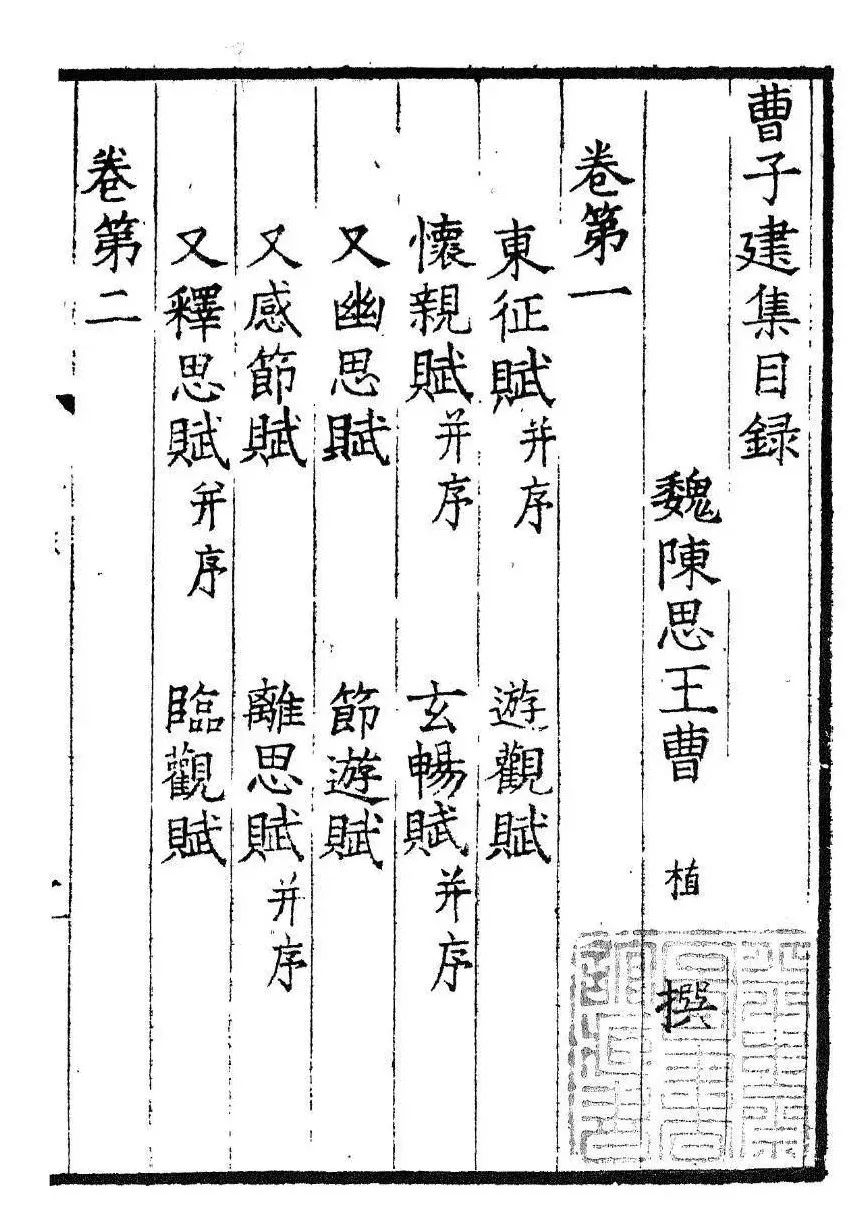 曹子建集目録
魏陳思王曹 植 撰
卷第一
東征賦并序 遊觀賦
懷親賦并序 玄暢賦并序
又幽思賦 節遊賦
又感節賦 離思賦并序
又釋思賦并序 臨觀賦
卷第二